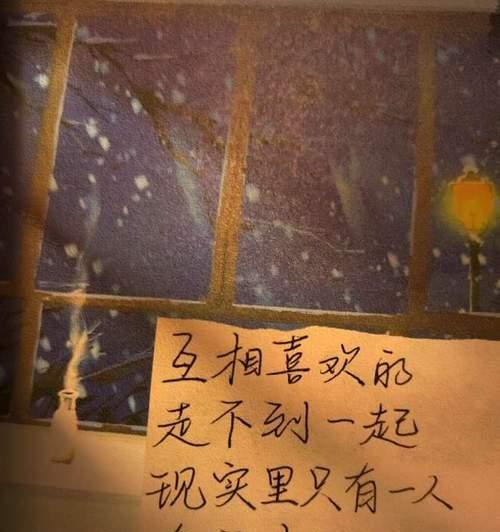 互相喜欢的
走不到一起
现实里只有一人